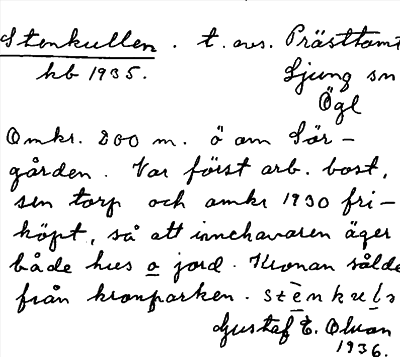 Stenkullen. t. avs. Prästtomt
hb 1935. Ljung sn
Ögl
Omkr. 200 m. ö om Sör-
gården. Var först arb. bost,
sen torp och omkr 1930 fri-
köpt, så att innehavaren äger
både hus o jord. Kronan sålde
från kronparken. stènkul
Gustaf E.
1936.